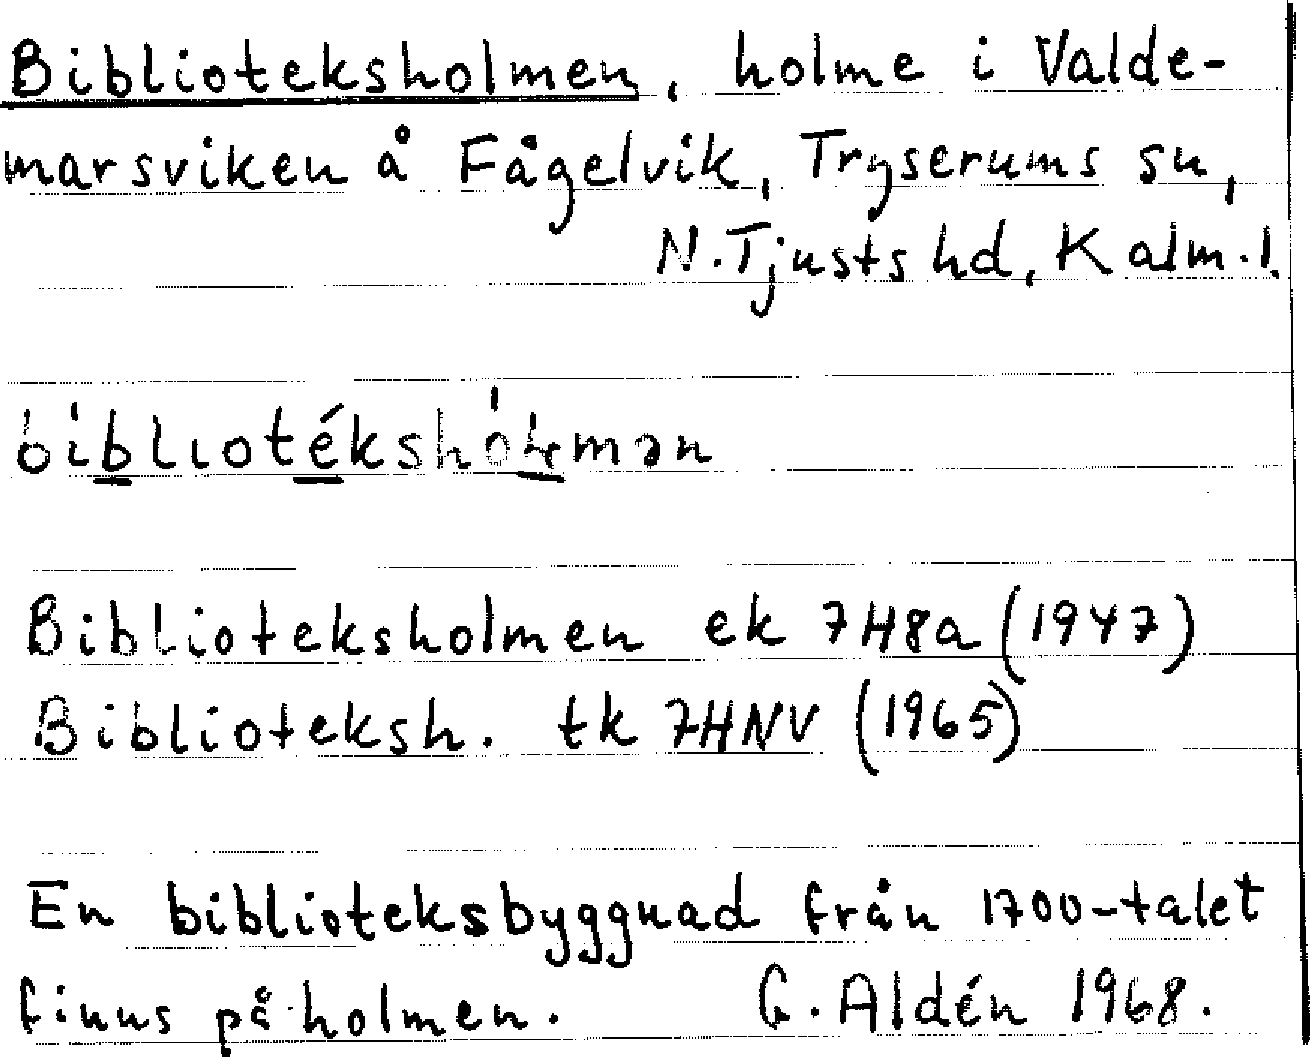 Biblioteksholmen, holme i Valde-
marsviken å Fågelvik, Tryserums sn,
N. Tjusts hd, Kalm. l.
Biblioteksholmen ek 7H8a (1947)
Biblioteksh. tk 7HNV (1965)
En biblioteksbyggnad från 1700-talet
finns på holmen. G. Aldén 1968.